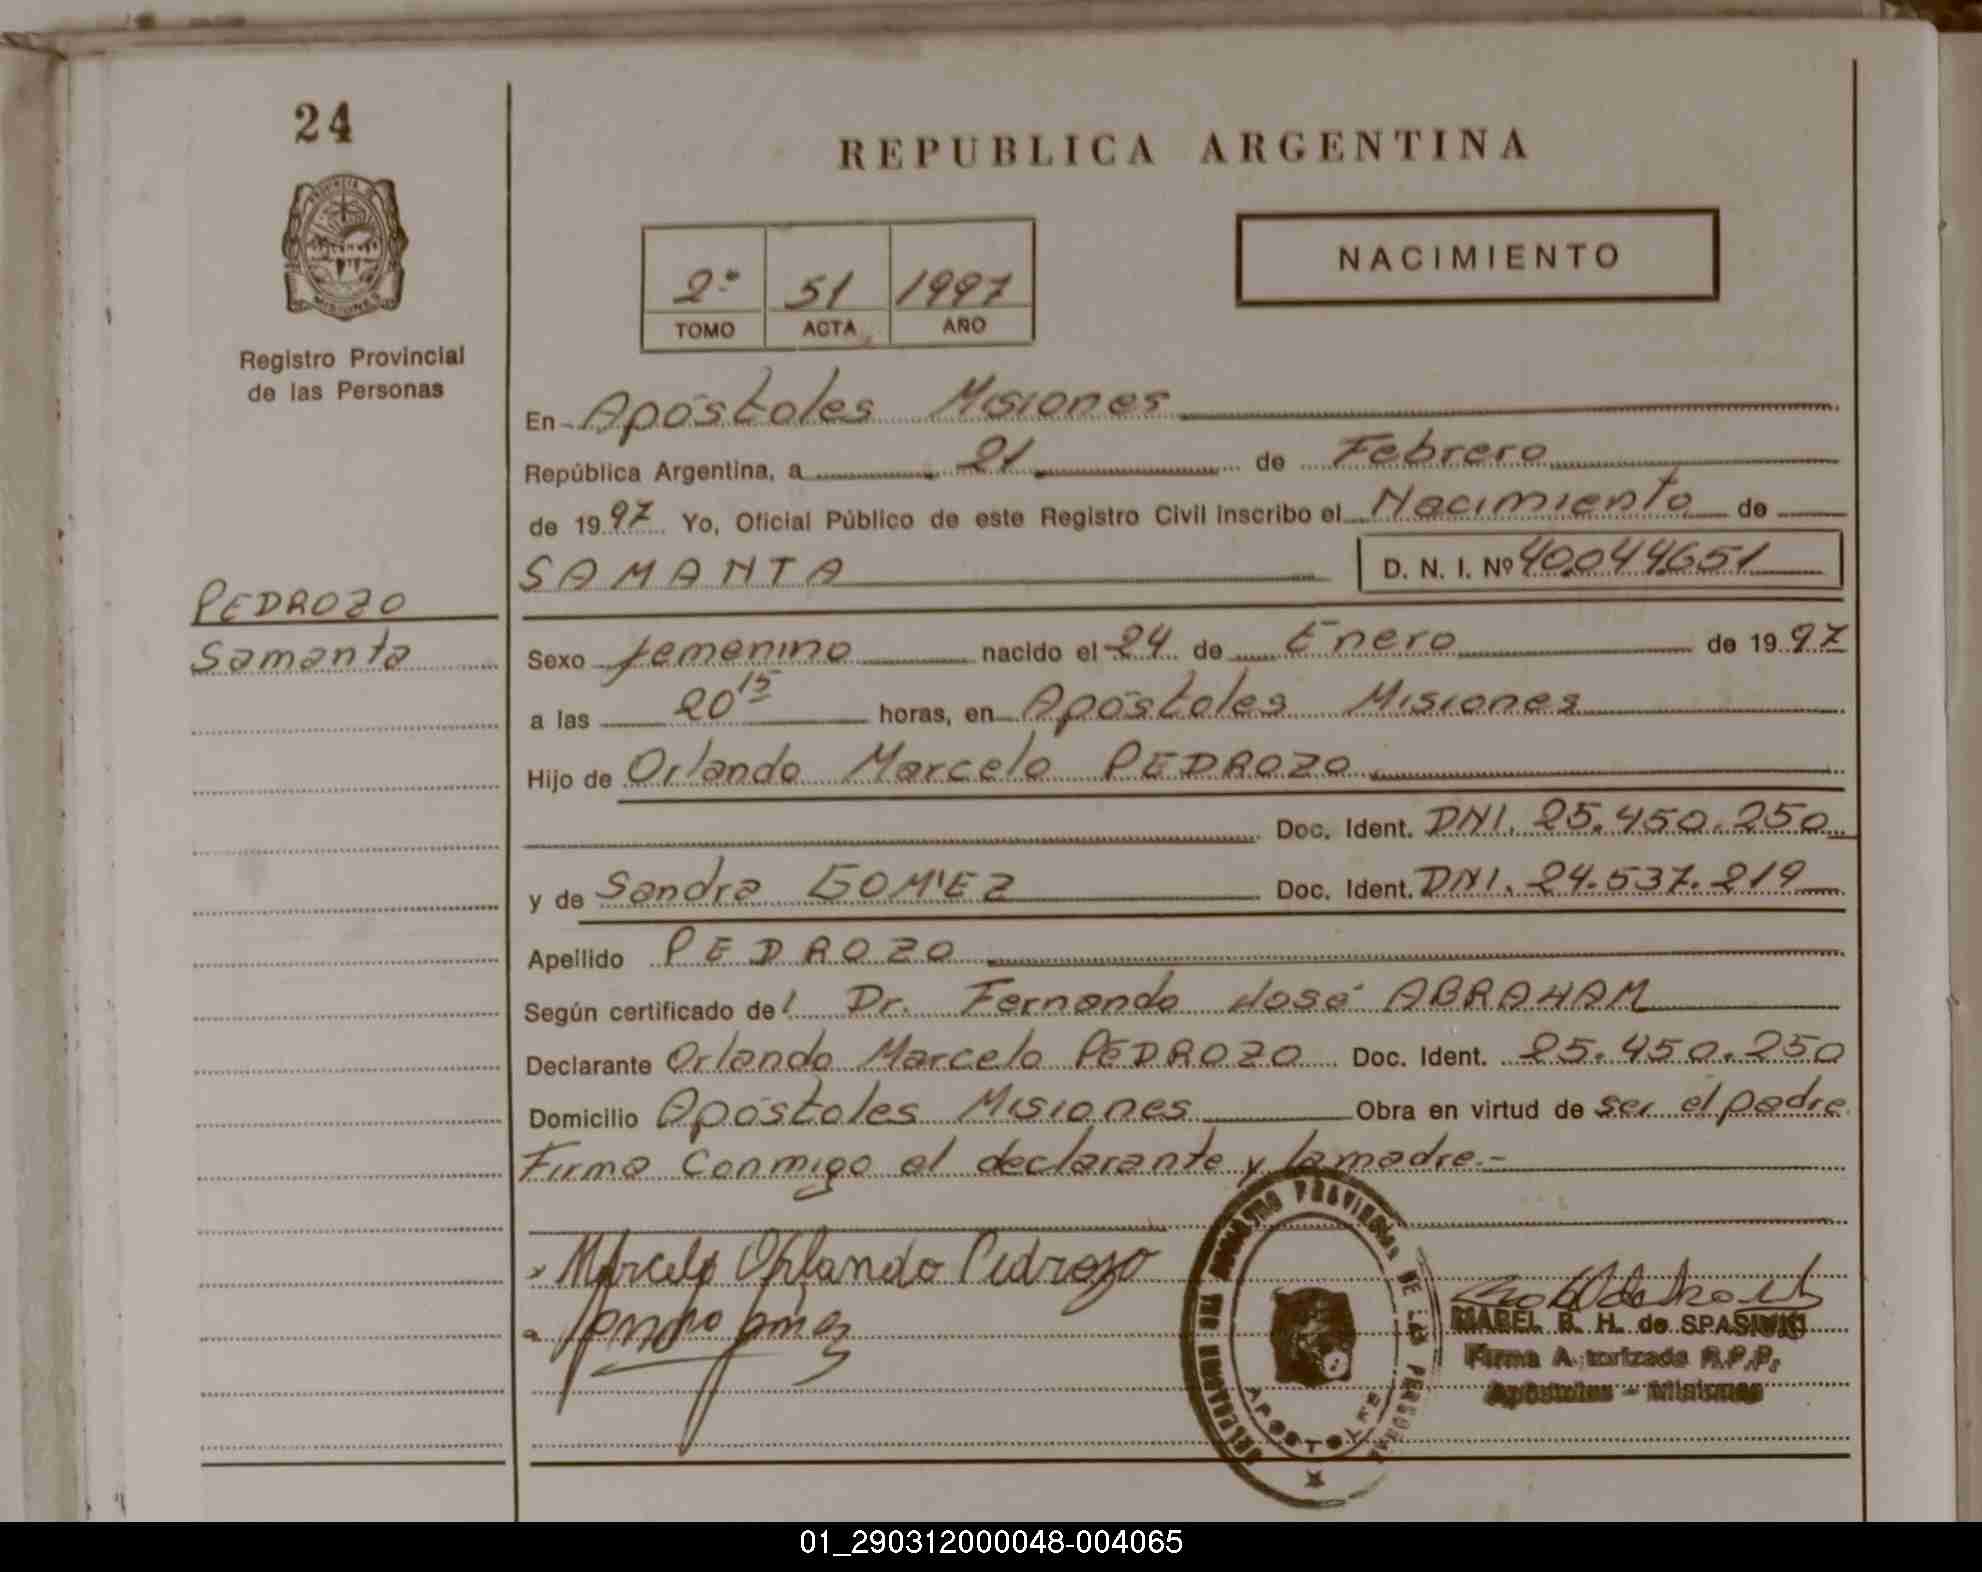 24
PROVINCIA DE
MISIONES
Registro Provincial
de las Personas
PEDROZO
Samanta
REPUBLICA ARGENTINA
NACIMIENTO
2º 51 1997
TOMO ACTA AÑO
En Apóstoles Misiones
República Argentina, a 21 de Febrero
de 1997 Yo, Oficial Público de este Registro Civil inscribo el Nacimiento de
SAMANTA D. N. I. Nº 40.044.651
Sexo femenino nacido el 24 de Enero de 1997
a las 20 15 horas, en Apóstoles Misiones
Hijo de Orlando Marcelo PEDROZO
Doc. Ident. DNI. 25.450.250
y de Sandra GOMEZ Doc. Ident. DNI. 24.537.219
Apellido PEDROZO
Según certificado del Dr. Fernando José ABRAHAM
Declarante Orlando Marcelo PEDROZO Doc. Ident. 25.450.250
Domicilio Apóstoles Misiones Obra en virtud de ser el padre
Firma Conmigo el declarante y la madre.-
Marcelo Orlando Pedrozo
REGISTRO PROVINCIAL DE LAS PERSONAS
APOSTOLES
MABEL B. H. de
Firma Autorizada R.P.P.
Apóstoles - Misiones
01_290312000048-004065